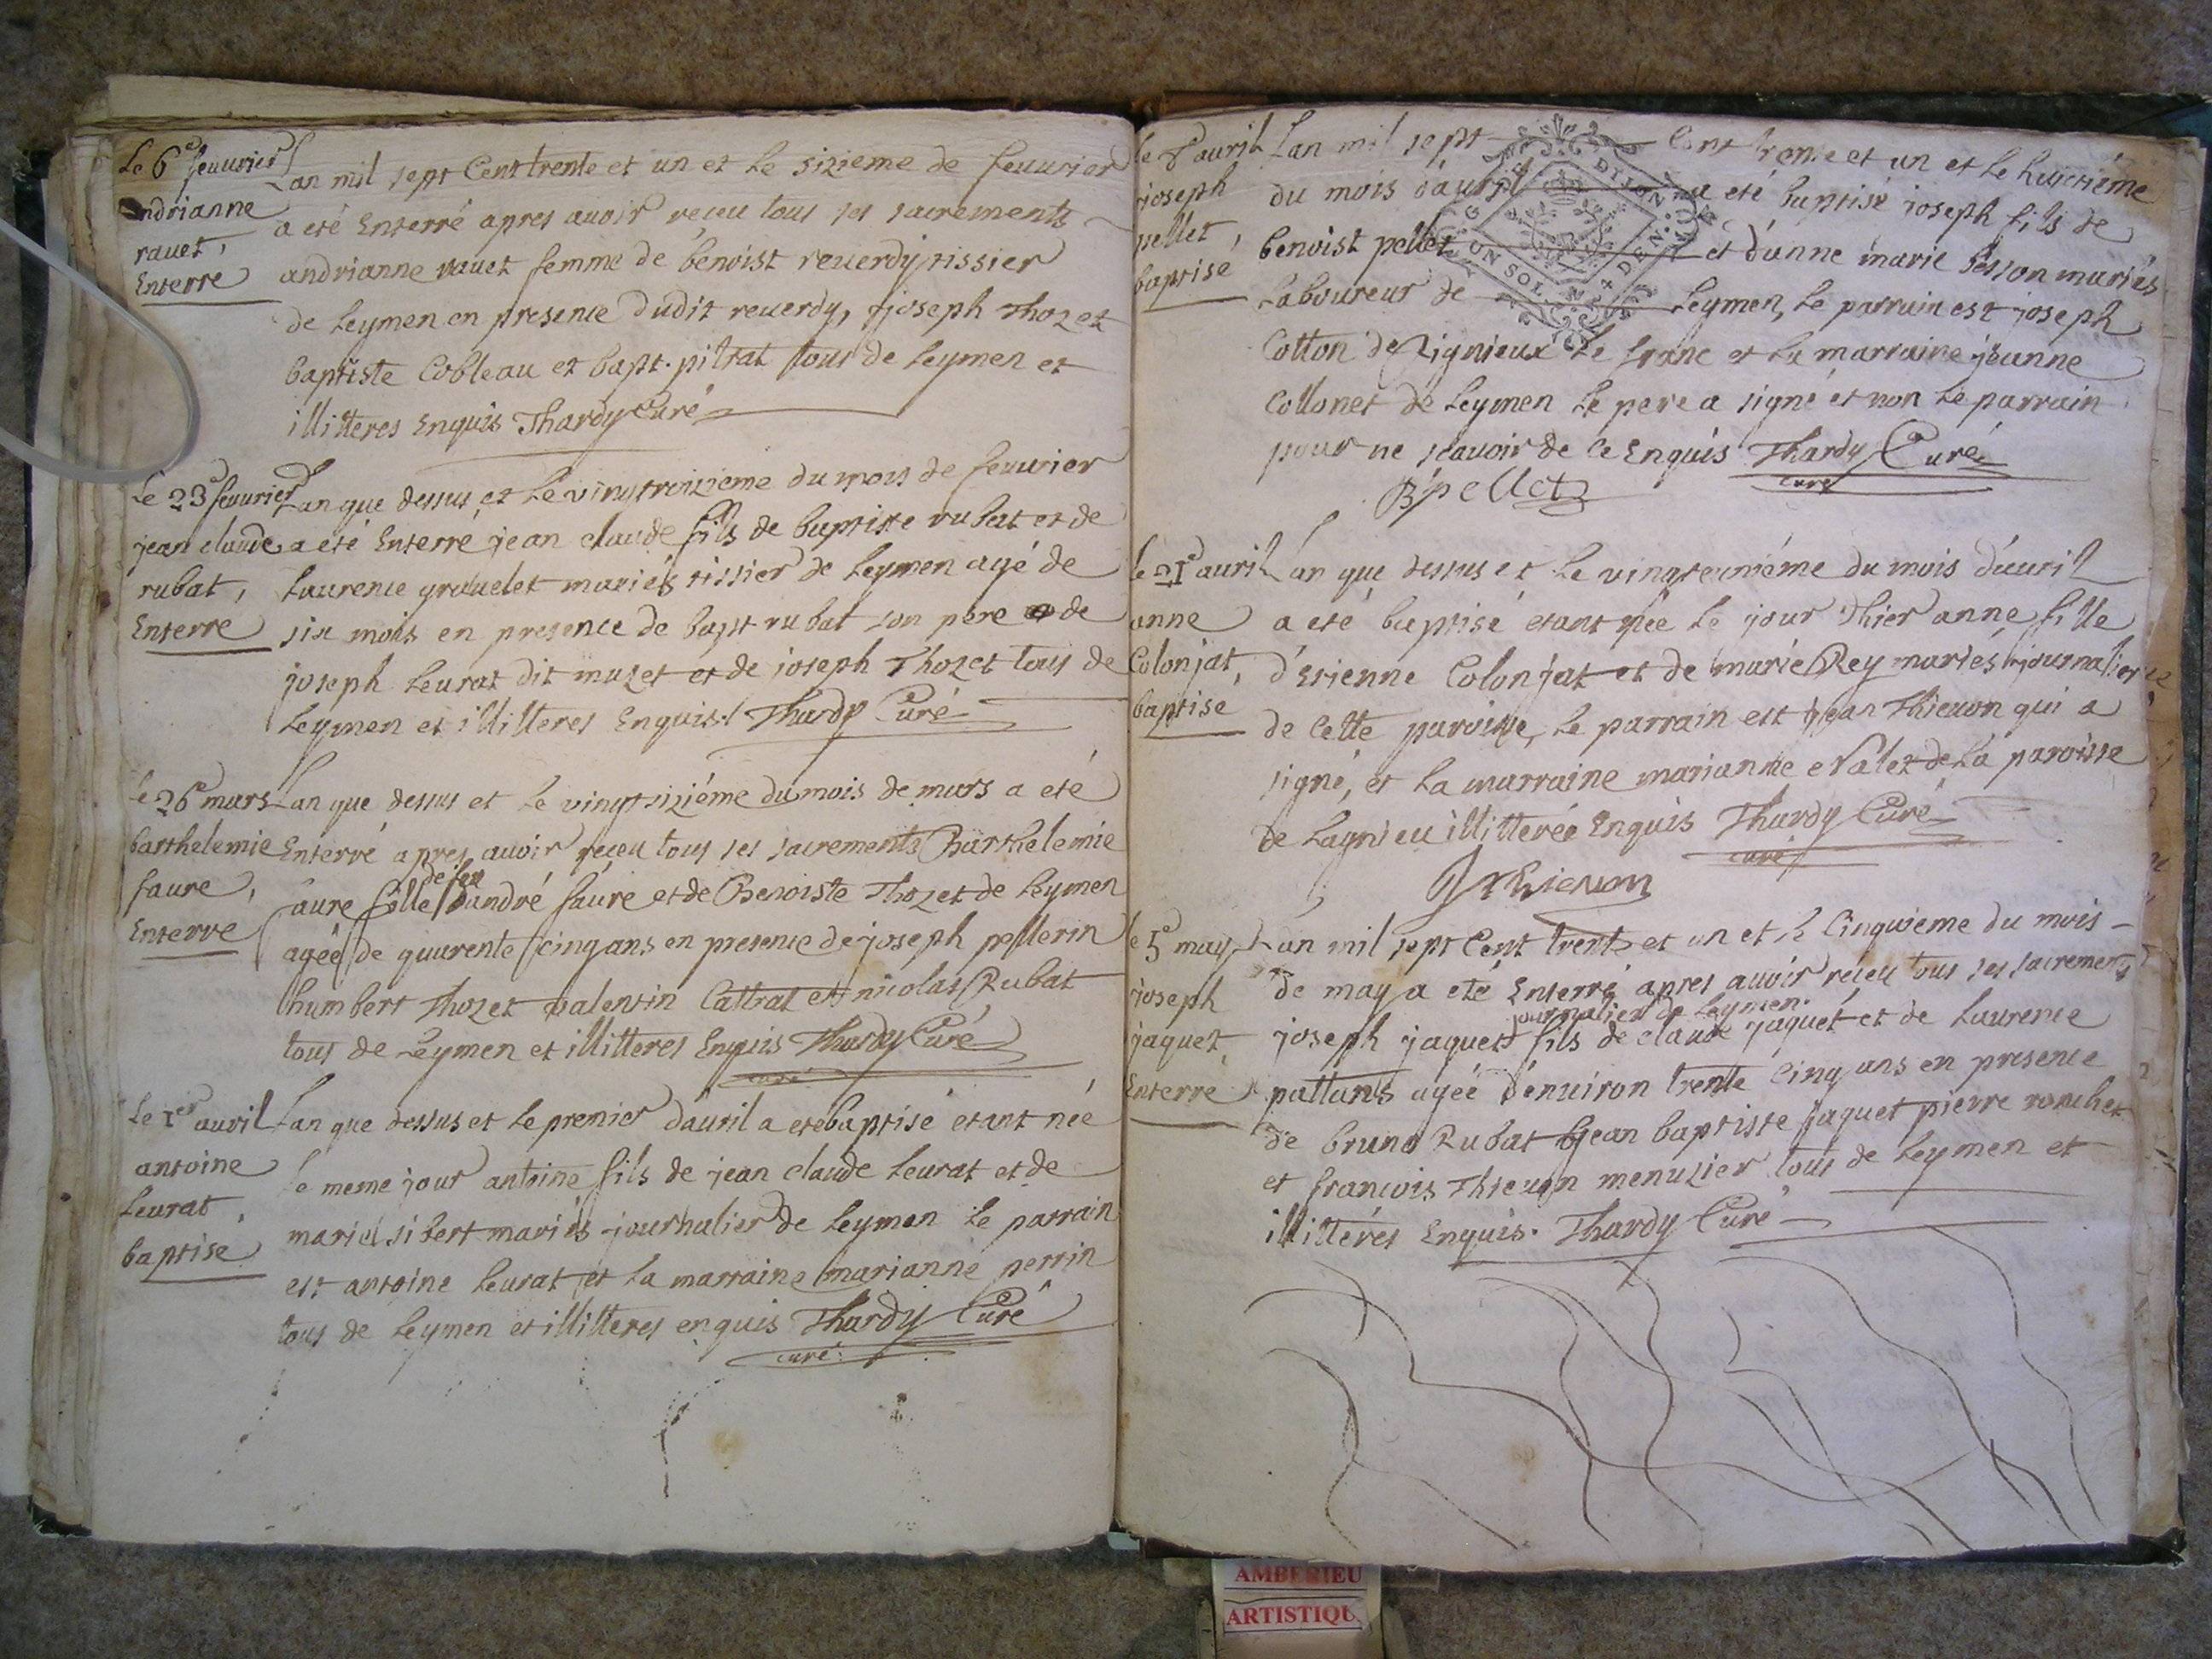 Le 6e feuurier
andrianne
rauet,
Enterre
Lan mil sept Cent trente et un et le sizieme de feuurier
a eté Enterré apres auoir reçeu tous ses sacrements
andrianne rauet femme de benoist reuerdy tissier
de Leymen en presence dudit reuerdy, joseph Thozet
baptiste Cobleau et bapt. pitrat tous de Leymen et
illitteres Enquis Thardy Curé
Le 23e feurier
jean claude
rubat,
Enterre
Lan que dessus et le vingtroizieme du mois de feuurier
a eté Enterré jean claude fils de baptiste rubat et de
Laurence grauelet mariés tissier de Leymen agé de
six mois en presence de bapt rubat son pere et de
joseph Leurat dit muzet et de joseph Thozet tous de
Leymen et illitteres Enquis. Thardy Curé
Le 26e mars
barthelemie
faure,
Enterre
Lan que dessus et le vingtsiziéme du mois de mars a eté
Enterré apres auoir reçeu tous ses sacrements Barthelemie
de feu
faure fille dandré faure et de Benoiste Thozet de Leymen
agéé de quarente cinq ans en presence de joseph pellerin
humbert Thozet valentin Cattrat et nicolas Rubat
tous de Leymen et illitteres Enquis Thardy Curé
curé
Le 1er auril
antoine
Leurat,
baptise
Lan que dessus et le premier dauril a eté baptisé etant née
le meme jour antoine fils de jean claude Leurat et de
marie sibert mariés journalier de Leymen le parrain
est antoine Leurat et la marraine marianne perrin
tous de Leymen et illitteres enquis Thardy Curé
curé
Le 8e auril
joseph
pellet,
baptisé
Lan mil sept Cent trente et un et le huictiéme
du mois dauril a eté baptisé joseph fils de
benoist pellet et d'anne marie besson mariés
Laboureur de Leymen, le parrain est joseph
Cotton de Rignieux le franc et la marraine jeanne
Collonet de Leymen le pere a signé et non le parrain
pour ne scauoir de ce Enquis Thardy Curé
curé
B pellet
DIJON
4 DEN.
Le 21e auril
anne
Colonjat,
baptisé
Lan que dessus et le vingteuniéme du mois dauril
a eté baptisé etant née le jour d'hier anne fille
d'Etienne Colonjat et de marie Rey mariés journaliers
de cette paroisse, le parrain est jean Thieuon qui a
signé, et la marraine marianne Valet de la paroisse
de Lagnieu illitterée Enquis Thardy Curé
curé
J Thieuon
le 5e may
joseph
jaquet,
Enterré
Lan mil sept Cent trente et un et le Cinquieme du mois
de may a eté Enterré apres auoir reçeu tous ses sacrements
journalier de Leymen.
joseph jaquet fils de claude jaquet et de Laurence
pattans agéé d'enuiron trente Cinq ans en presence
de bruno Rubat jean baptiste jaquet pierre ronchet
et francois Thieuon menuzier tous de Leymen et
illittérés Enquis. Thardy Curé
AMBERIEU
ARTISTIQU